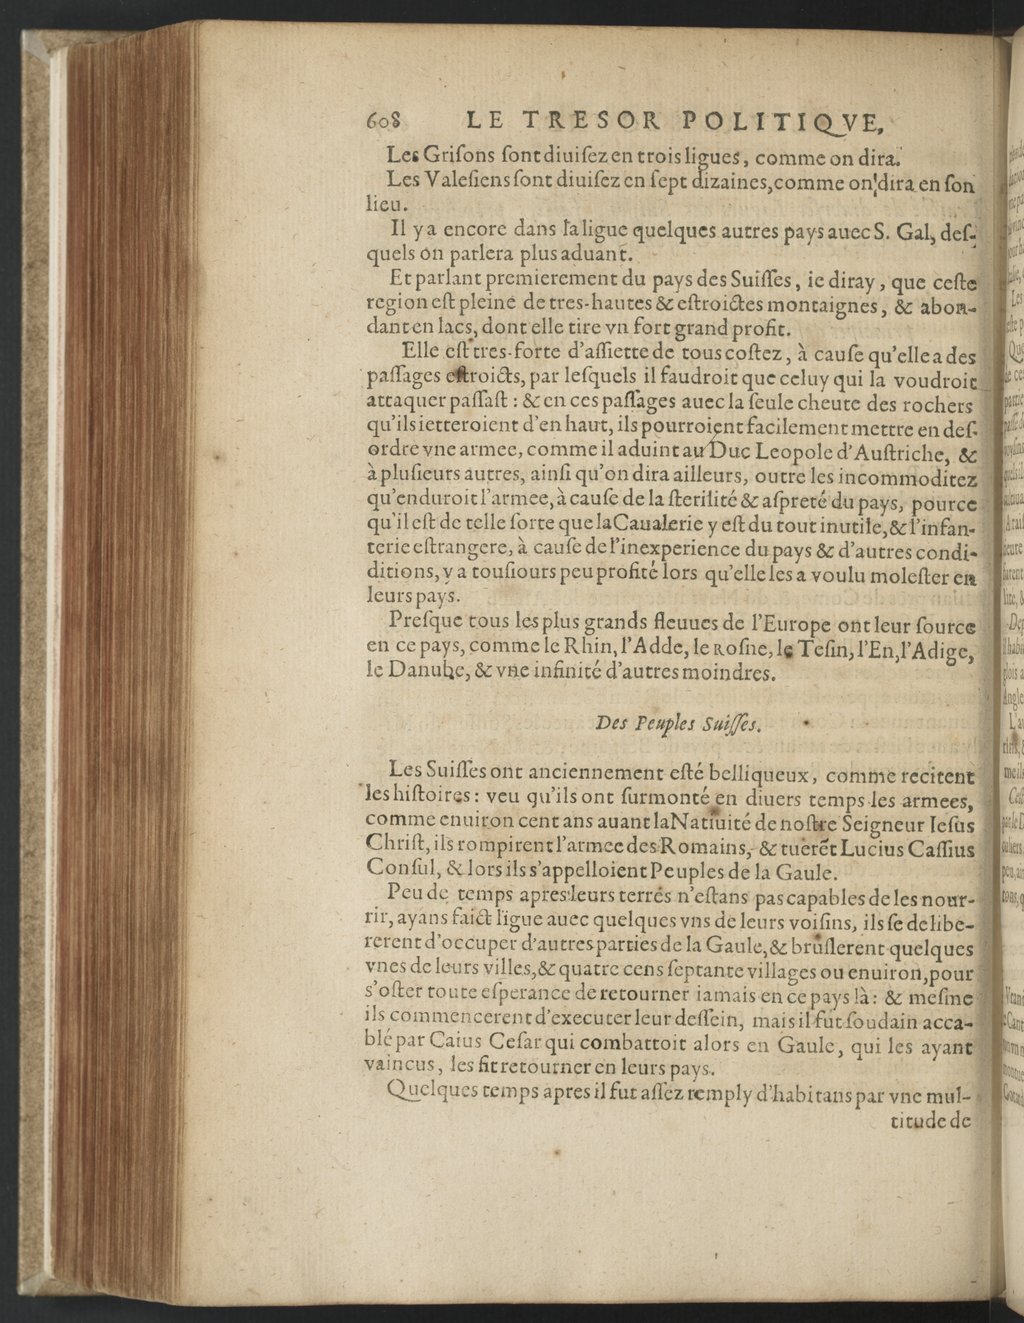 608 LE TRESOR POLITIQVE,
Les Griſons ſont diuiſez en trois ligues, comme on dira.
Les Valeſiens ſont diuiſez en ſept dizaines, comme on dira en ſon
lieu.
Il y a encore dans la ligue quelques autres pays auec S. Gal, deſ-
quels on parlera plus aduant.
Et parlant premierement du pays des Suiſſes, ie diray, que ceſte
region eſt pleine de tres-hautes & eſtroictes montaignes, & abon-
dant en lacs, dont elle tire vn fort grand profit.
Elle eſt tres-forte d'aſſiette de tous coſtez, à cauſe qu'elle a des
paſſages eſtroicts, par leſquels il faudroit que celuy qui la voudroit
attaquer paſſaſt : & en ces paſſages auec la ſeule cheute des rochers
qu'ils ietteroient d'en haut, ils pourroient facilement mettre en deſ-
ordre vne armee, comme il aduint au Duc Leopole d'Auſtriche, &
à pluſieurs autres, ainſi qu'on dira ailleurs, outre les incommoditez
qu'enduroit l'armee, à cauſe de la ſterilité & aſpreté du pays, pource
qu'il eſt de telle ſorte que la Caualerie y eſt du tout inutile, & l'infan-
terie eſtrangere, à cauſe de l'inexperience du pays & d'autres condi-
ditions, y a touſiours peu profité lors qu'elle les a voulu moleſter en
leurs pays.
Preſque tous les plus grands fleuues de l'Europe ont leur ſource
en ce pays, comme le Rhin, l'Adde, le Roſne, le Teſin, l'En, l'Adige,
le Danube, & vne infinité d'autres moindres.
Des Peuples Suiſſes.
Les Suiſſes ont anciennement eſté belliqueux, comme recitent
les hiſtoires : veu qu'ils ont ſurmonté en diuers temps les armees,
comme enuiron cent ans auant la Natiuité de noſtre Seigneur Ieſus
Chriſt, ils rompirent l'armee des Romains, & tuerẽt Lucius Caſſius
Conſul, & lors ils s'appelloient Peuples de la Gaule.
Peu de temps apres leurs terres n'eſtans pas capables de les nour-
rir, ayans faict ligue auec quelques vns de leurs voiſins, ils ſe delibe-
rerent d'occuper d'autres parties de la Gaule, & bruſlerent quelques
vnes de leurs villes, & quatre cens ſeptante villages ou enuiron, pour
s'oſter toute eſperance de retourner iamais en ce pays là : & meſme
ils commencerent d'executer leur deſſein, mais il fut ſoudain acca-
blé par Caius Ceſar qui combattoit alors en Gaule, qui les ayant
vaincus, les fit retourner en leurs pays.
Quelques temps apres il fut aſſez remply d'habitans par vne mul-
titude de